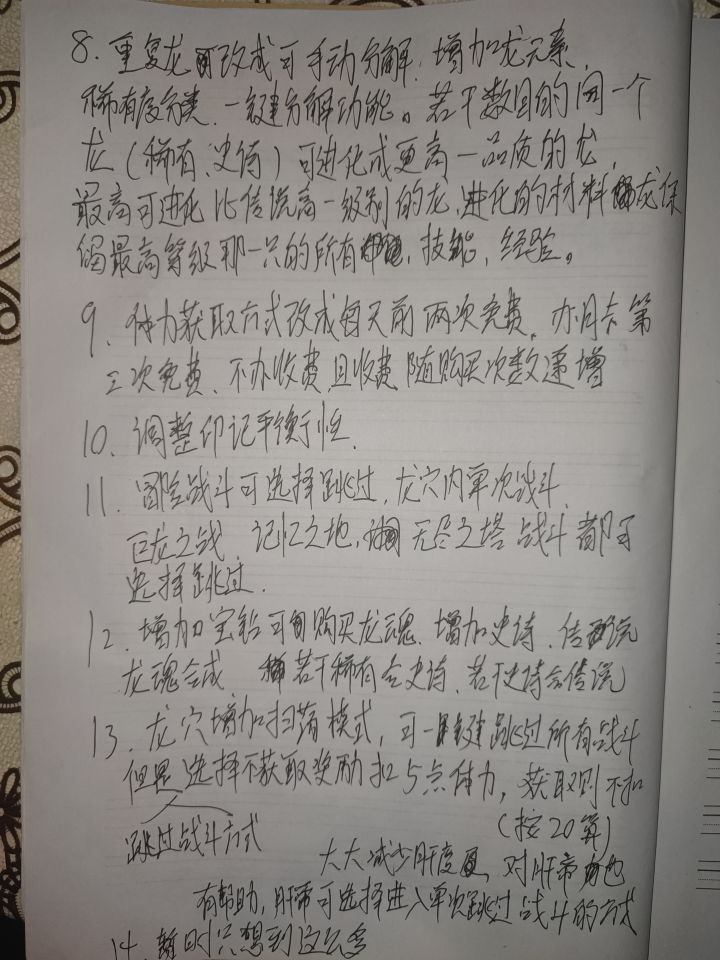 8. 重复龙改成可手动分解，增加龙元素、
稀有度分类、一键分解功能。若干数目的同一个
龙（稀有、史诗）可进化成更高一品质的龙，
最高可进化比传说高一级别的龙，进化的材料龙保
留最高等级那一只的所有，技能，经验。
9. 体力获取方式改成每天前两次免费，办月卡第
三次免费、不办收费，且收费随购买次数递增
10. 调整印记平衡性.
11. 冒险战斗可选择跳过，龙穴内单次战斗、
巨龙之战、记忆之地，无尽之塔战斗都可
选择跳过.
12. 增加宝钻可购买龙魂、增加史诗、传说
龙魂合成 若干稀有合史诗、若干史诗合传说
13. 龙穴增加扫荡模式，可一键跳过所有战斗
但是选择不获取奖励扣5点体力，获取则不扣
（按20算）
跳过战斗方式
大大减少肝度，对肝帝也
有帮助，肝帝可选择进入单次跳过战斗的方式
14. 暂时只想到这么多